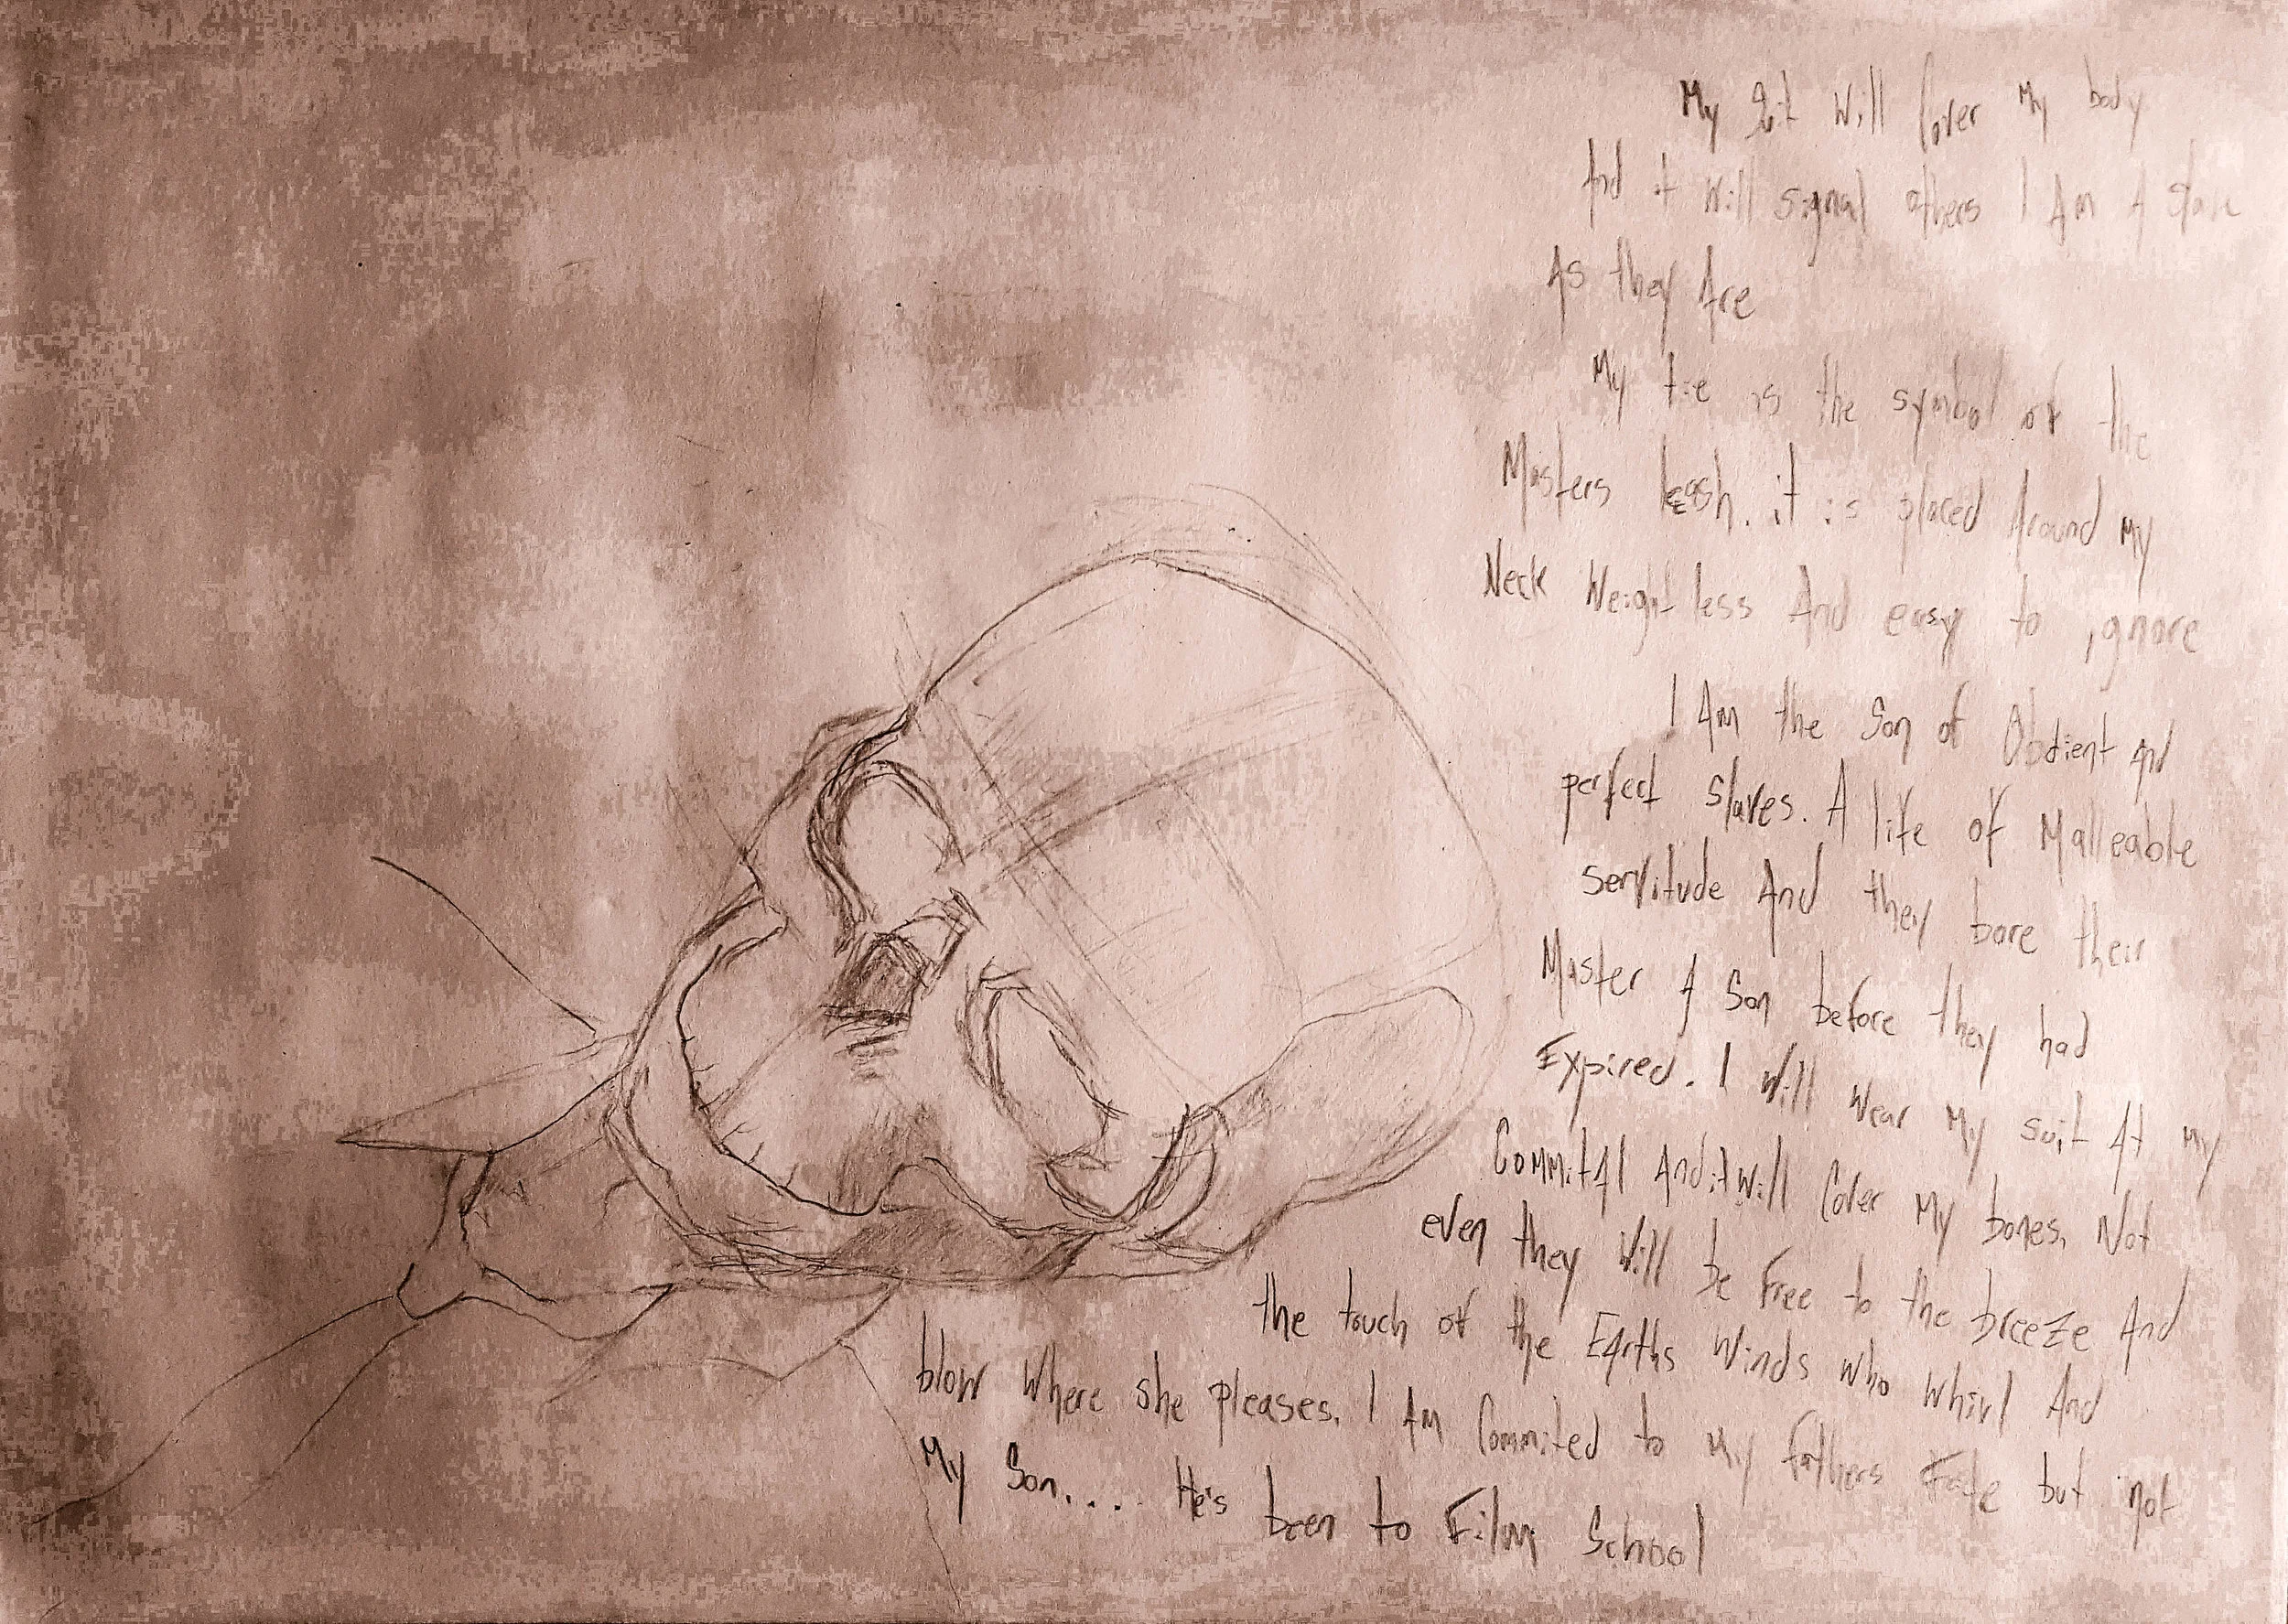 My Suit Will Cover My body
And it Will signal others I Am A slave
As they Are
My tie is the symbol of the
Masters leash. it is placed Around my
Neck Weightless And easy to ignore
I Am the Son of Obdient and
perfect slaves. A life of Malleable
servitude And they bore their
Master A Son before they had
Expired. I Will Wear My suit At My
CommitAl And it Will Cover My bones, Not
even they Will be Free to the breeze And
the touch of the EArths Winds who whirl And
blow Where she pleases. I Am Commited to My fathers Fate but not
My Son.... He's been to Film School